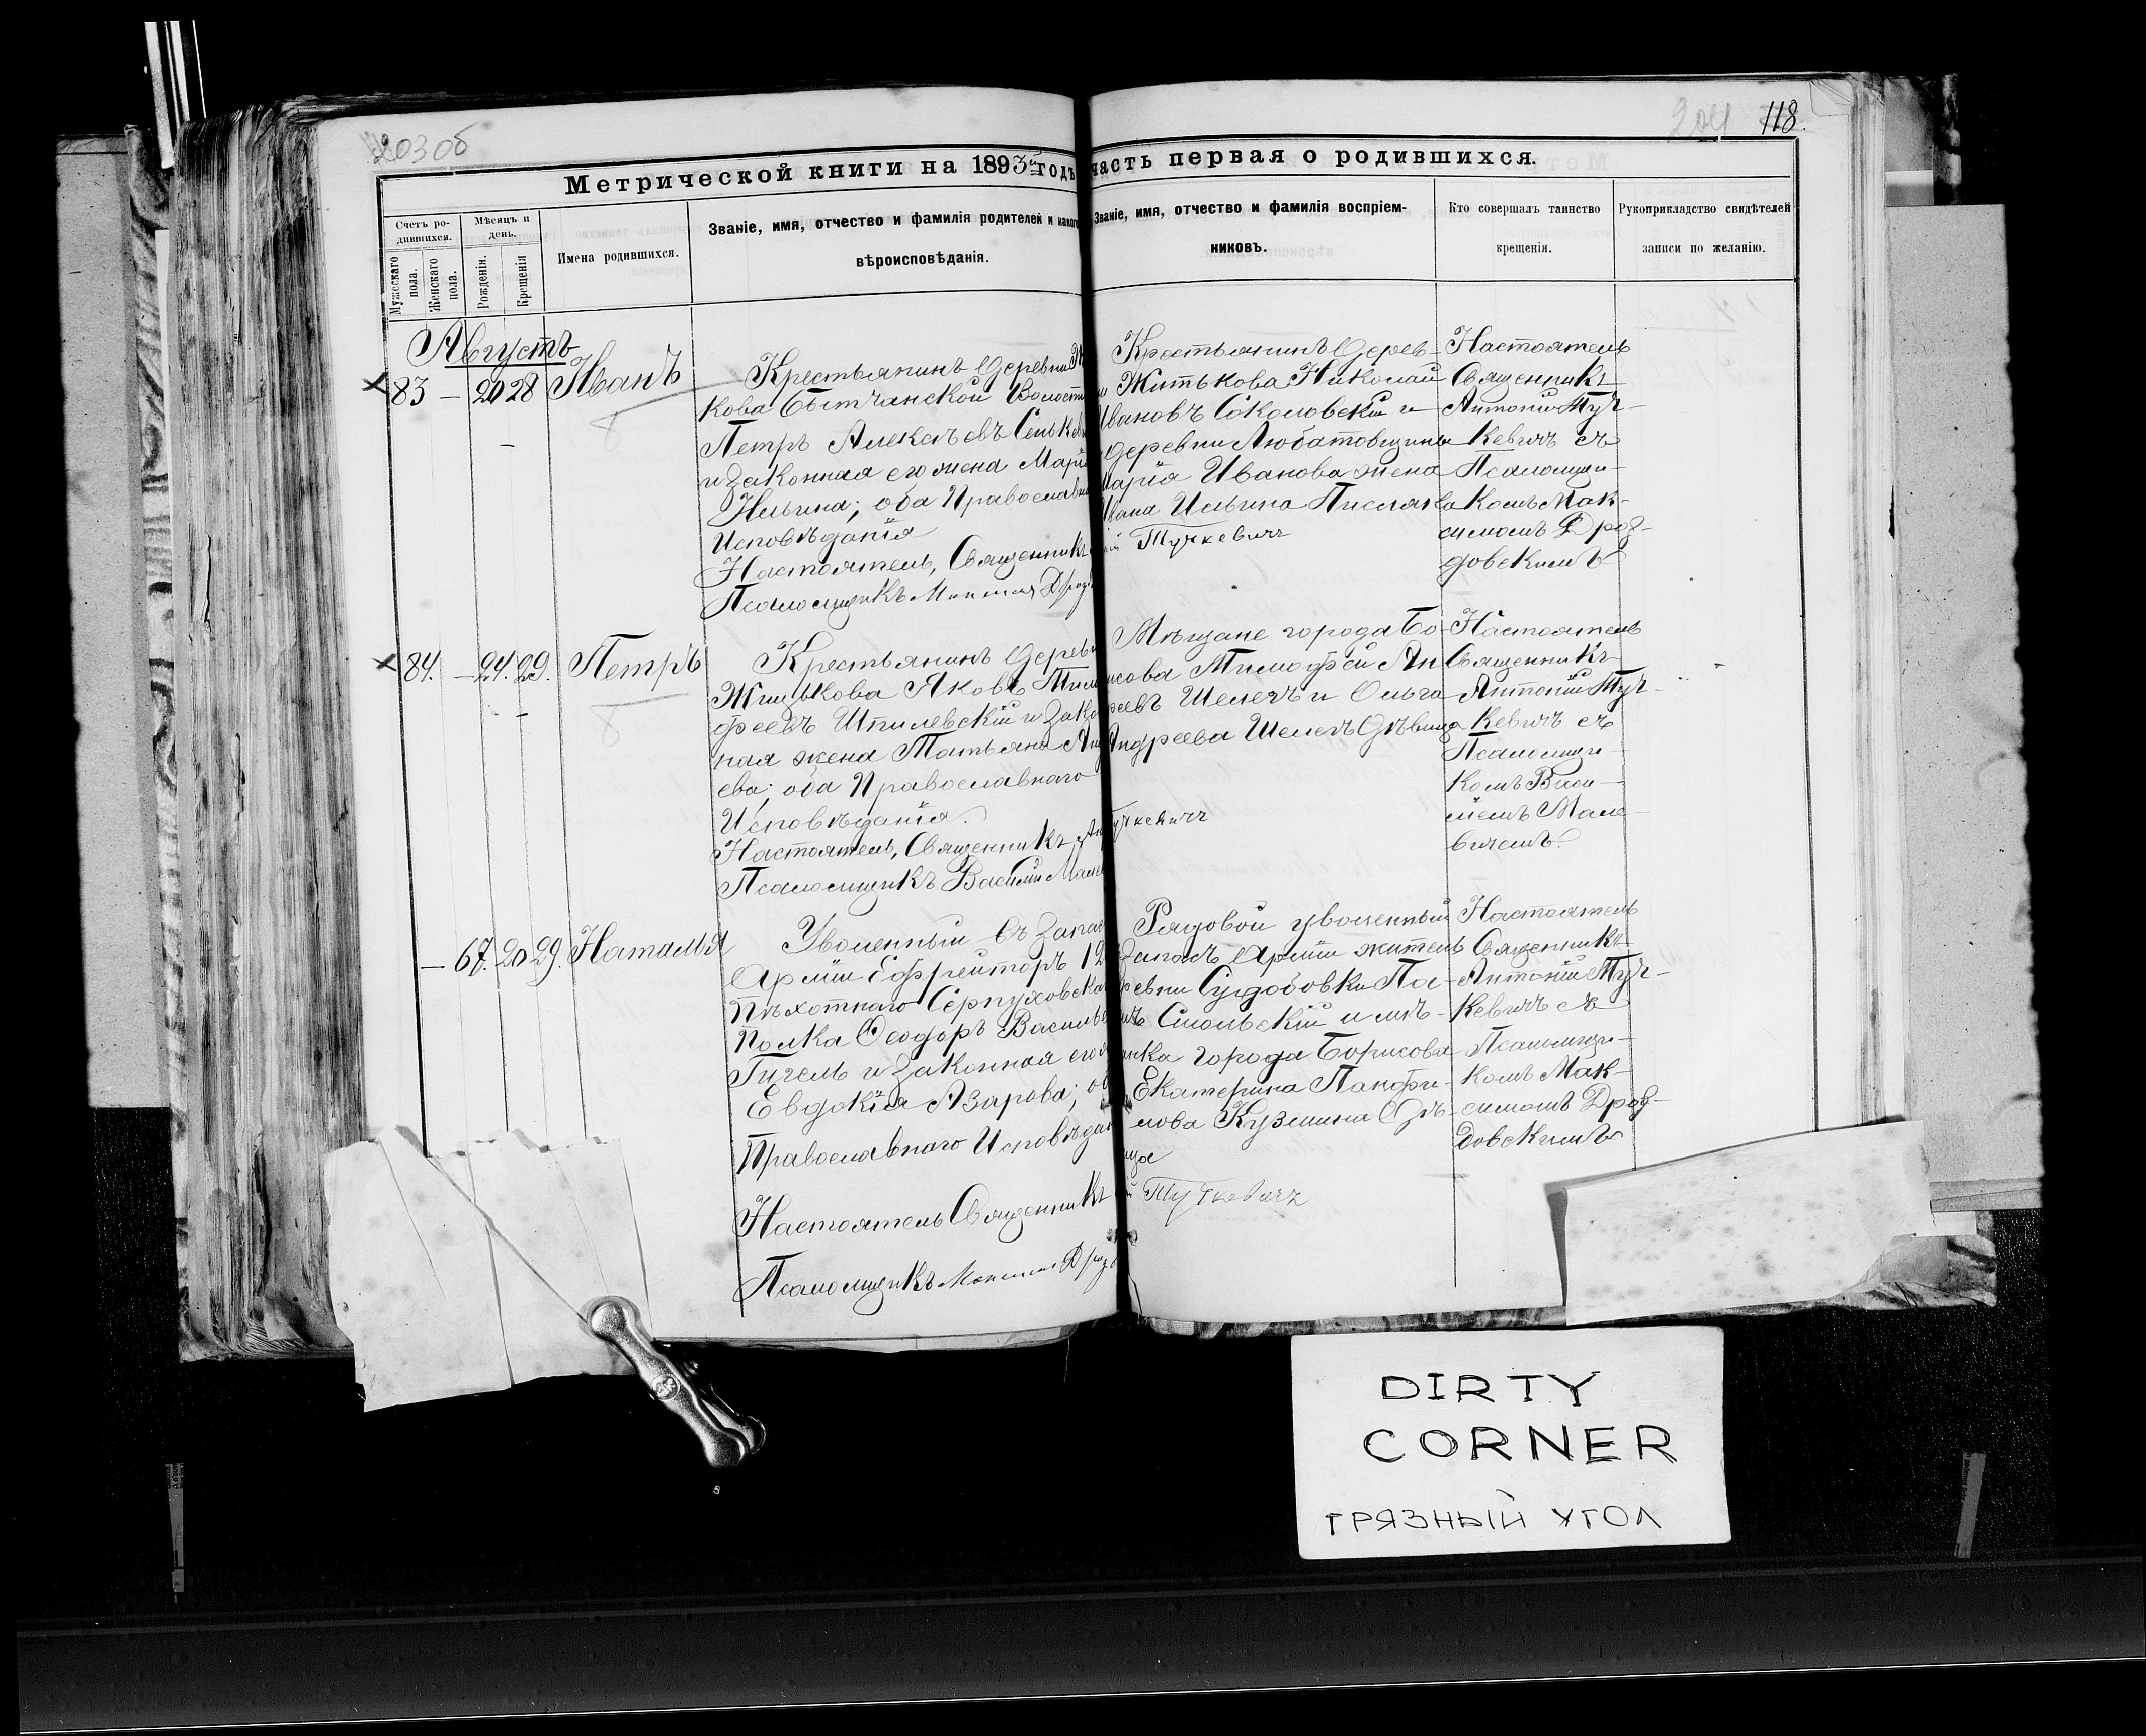 203 об
204 118.
Метрической книги на 1893й годъ
часть первая о родившихся.
Счетъ родившихся.
Мужескаго пола.
Женскаго пола.
Мѣсяцъ и день.
Рожденія.
Крещенія
Имена родившихся.
Званіе, имя, отчество и фамилія родителей и какого
вѣроисповѣданія.
Званіе, имя, отчество и фамилія воспріем-
никовъ.
Кто совершалъ таинство
крещенія.
Рукоприкладство свидѣтелей
записи по желанію.
Августъ
83 — 20 28 Иванъ
Крестьянинъ деревни
кова Бытчанской Волости
Петръ Алексѣевъ
и законная его жена Марія
Ильина; оба Православнаго
Исповѣданія
Настоятель, Священникъ
Псаломщикъ Максимъ
Крестьянинъ дерев-
ни Житькова Николай
Ивановъ Соколовскій и
деревни Любатовщины
Марія Иванова жена
Ивана Ильина
Тучкевичъ
Настоятель
Священникъ
Антоній Туч-
кевичъ съ
Псаломщи-
комъ Мак-
симомъ Дроз-
довскимъ
84. — 24. 29. Петръ
Крестьянинъ деревни
Житькова Яковъ Тимо
феевъ Шпилевскій и закон
ная жена Татьяна Анд
ева; оба Православнаго
Исповѣданія.
Настоятель, Священникъ Ан
Псаломщикъ Василій
Мѣщане города Бо-
рисова Тимофей Ан
реевъ Шелегъ и Ольга
Андреева Шелегъ дѣвица
Тучкевичъ
Настоятель
Священникъ
Антоній Туч-
кевичъ съ
Псаломщи-
комъ Васи-
ліемъ Мале-
вичемъ.
— 67. 20 29. Наталья
Уволенный въ запас
Арміи Ефрейторъ 12
Пѣхотнаго Серпуховскаго
Полка Ѳеодоръ Васильевъ
и законная его
Евдокія Азарова; об
Православнаго Исповѣдан
Настоятель Священникъ
Псаломщикъ Максимъ Дроздо
Рядовой уволенный
въ запасъ Арміи житель
деревни Судобовки Па-
Смольскій и мѣ-
щанка города Борисова
Екатерина Панфи-
лова Кузмина дѣ-
вица
Тучкевичъ
Настоятель
Священникъ
Антоній Туч-
кевичъ съ
Псаломщи-
комъ Мак-
симомъ Дроз-
довскимъ
DIRTY
CORNER
ГРЯЗНЫЙ УГОЛ